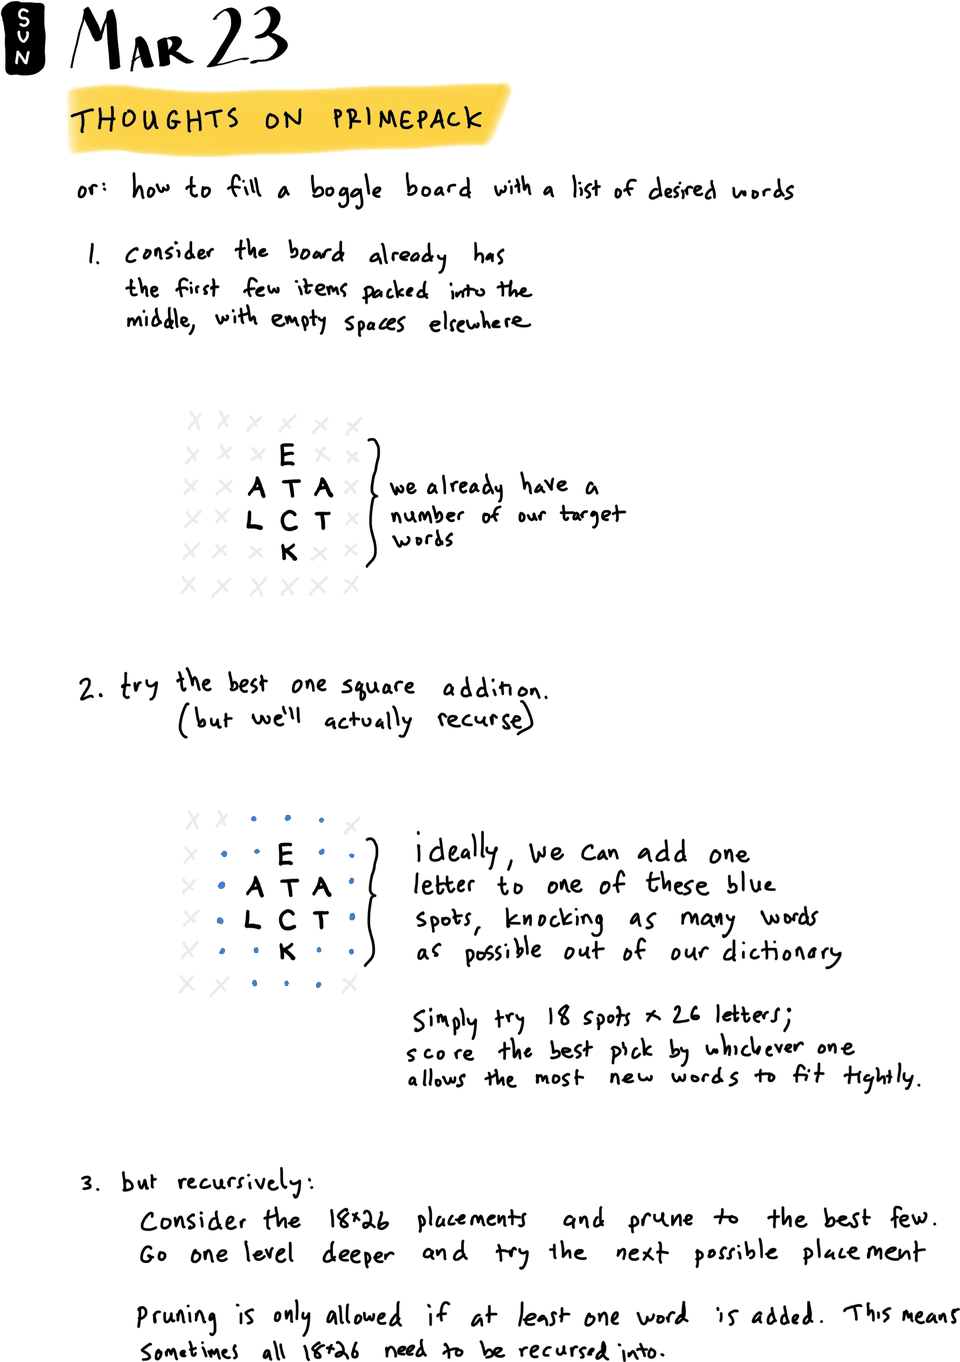 SUN
MAR 23
THOUGHTS ON PRIMEPACK
or: how to fill a boggle board with a list of desired words
1. consider the board already has
the first few items packed into the
middle, with empty spaces elsewhere
x x x x x x
x x x E x x
x x A T A x
x x L C T x
x x x K x x
x x x x x x
we already have a
number of our target
words
2. try the best one square addition.
(but we'll actually recurse)
x x • • • x
x • • E • •
x • A T A •
x • L C T •
x • • K • •
x x • • • x
ideally, we can add one
letter to one of these blue
spots, knocking as many words
as possible out of our dictionary
Simply try 18 spots × 26 letters;
score the best pick by whichever one
allows the most new words to fit tightly.
3. but recursively:
Consider the 18×26 placements and prune to the best few.
Go one level deeper and try the next possible placement
Pruning is only allowed if at least one word is added. This means
Sometimes all 18*26 need to be recursed into.